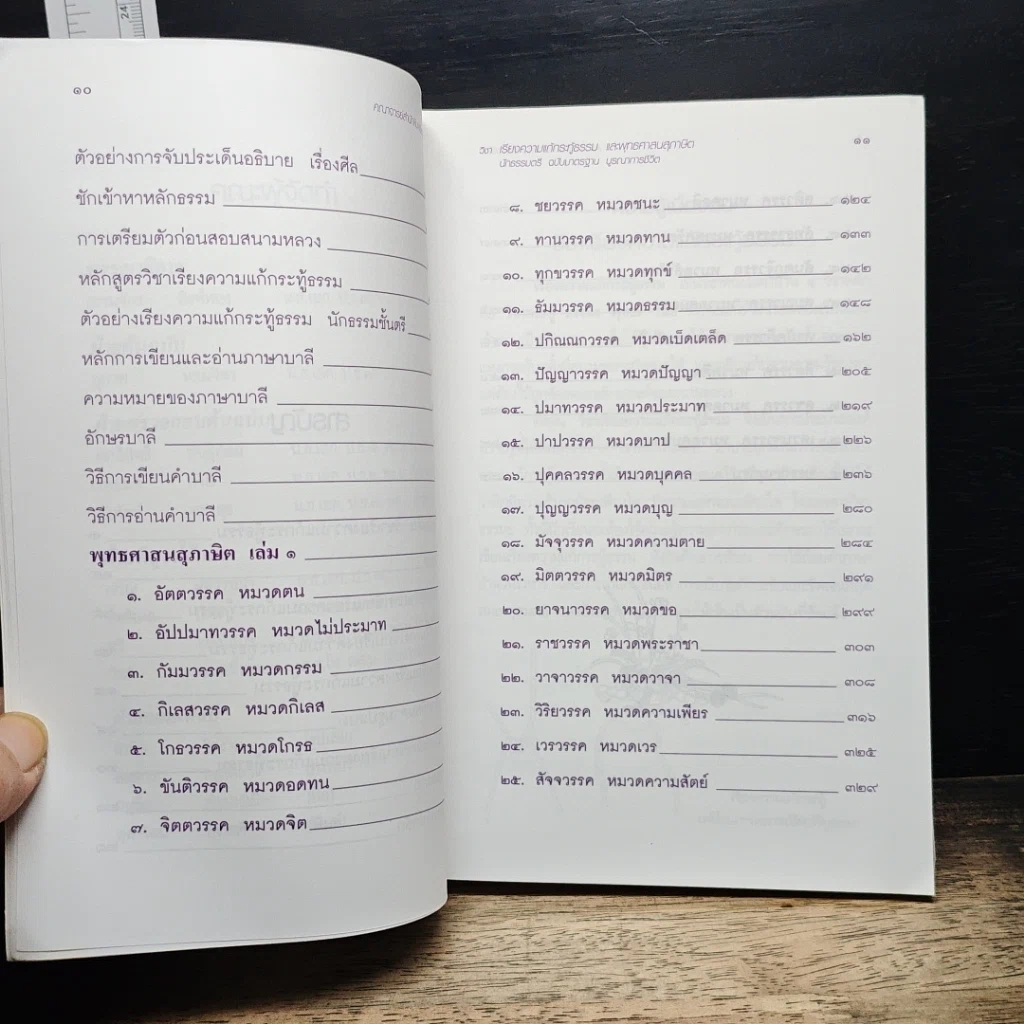 24
๑๐
ตัวอย่างการจับประเด็นอธิบาย เรื่องศีล
ชักเข้าหาหลักธรรม
การเตรียมตัวก่อนสอบสนามหลวง
หลักสูตรวิชาเรียงความแก้กระทู้ธรรม
ตัวอย่างเรียงความแก้กระทู้ธรรม นักธรรมชั้นตรี
หลักการเขียนและอ่านภาษาบาลี
ความหมายของภาษาบาลี
อักษรบาลี
วิธีการเขียนคำบาลี
วิธีการอ่านคำบาลี
พุทธศาสนสุภาษิต เล่ม ๑
๑. อัตตวรรค หมวดตน
๒. อัปปมาทวรรค หมวดไม่ประมาท
๓. กัมมวรรค หมวดกรรม
๔. กิเลสวรรค หมวดกิเลส
๕. โกธวรรค หมวดโกรธ
๖. ขันติวรรค หมวดอดทน
๗. จิตตวรรค หมวดจิต
วิชา เรียงความแก้กระทู้ธรรม และพุทธศาสนสุภาษิต ๑๑
นักธรรมตรี ฉบับมาตรฐาน บูรณาการชีวิต
๘. ชยวรรค หมวดชนะ ๑๒๔
๙. ทานวรรค หมวดทาน ๑๓๓
๑๐. ทุกขวรรค หมวดทุกข์ ๑๔๒
๑๑. ธัมมวรรค หมวดธรรม ๑๔๘
๑๒. ปกิณณกวรรค หมวดเบ็ดเตล็ด ๑๖๒
๑๓. ปัญญาวรรค หมวดปัญญา ๒๐๕
๑๔. ปมาทวรรค หมวดประมาท ๒๑๙
๑๕. ปาปวรรค หมวดบาป ๒๒๖
๑๖. ปุคคลวรรค หมวดบุคคล ๒๓๖
๑๗. ปุญญวรรค หมวดบุญ ๒๘๐
๑๘. มัจจุวรรค หมวดความตาย ๒๘๔
๑๙. มิตตวรรค หมวดมิตร ๒๙๑
๒๐. ยาจนาวรรค หมวดขอ ๒๙๙
๒๑. ราชวรรค หมวดพระราชา ๓๐๓
๒๒. วาจาวรรค หมวดวาจา ๓๐๘
๒๓. วิริยวรรค หมวดความเพียร ๓๑๖
๒๔. เวรวรรค หมวดเวร ๓๒๕
๒๕. สัจจวรรค หมวดความสัตย์ ๓๒๙